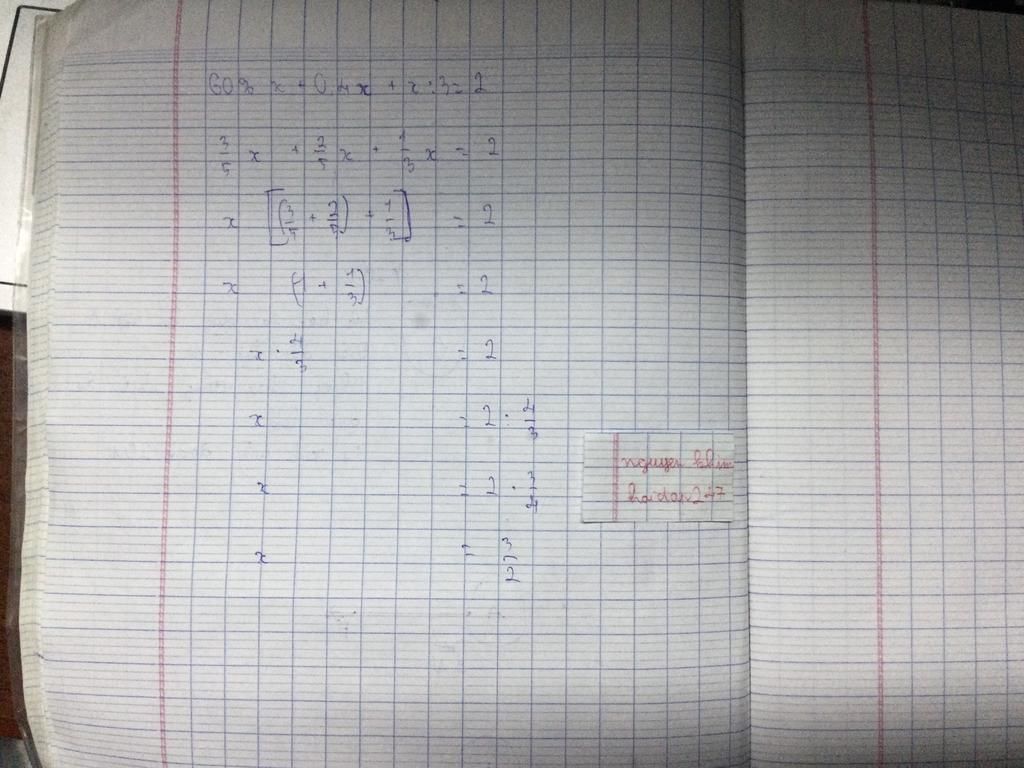 60% x + 0,4x + x : 3 = 2
3/5 x + 2/5 x + 1/3 x = 2
x [(3/5 + 2/5) + 1/3] = 2
x (1 + 1/3) = 2
x . 4/3 = 2
x = 2 : 4/3
x = 2 . 3/4
x = 3/2
nguyen khim
hoidap247